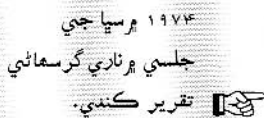 ۱۹۷۴ ۾ سڀا جي
جلسي ۾ ناري گرسھاڻي
تقرير ڪندي.